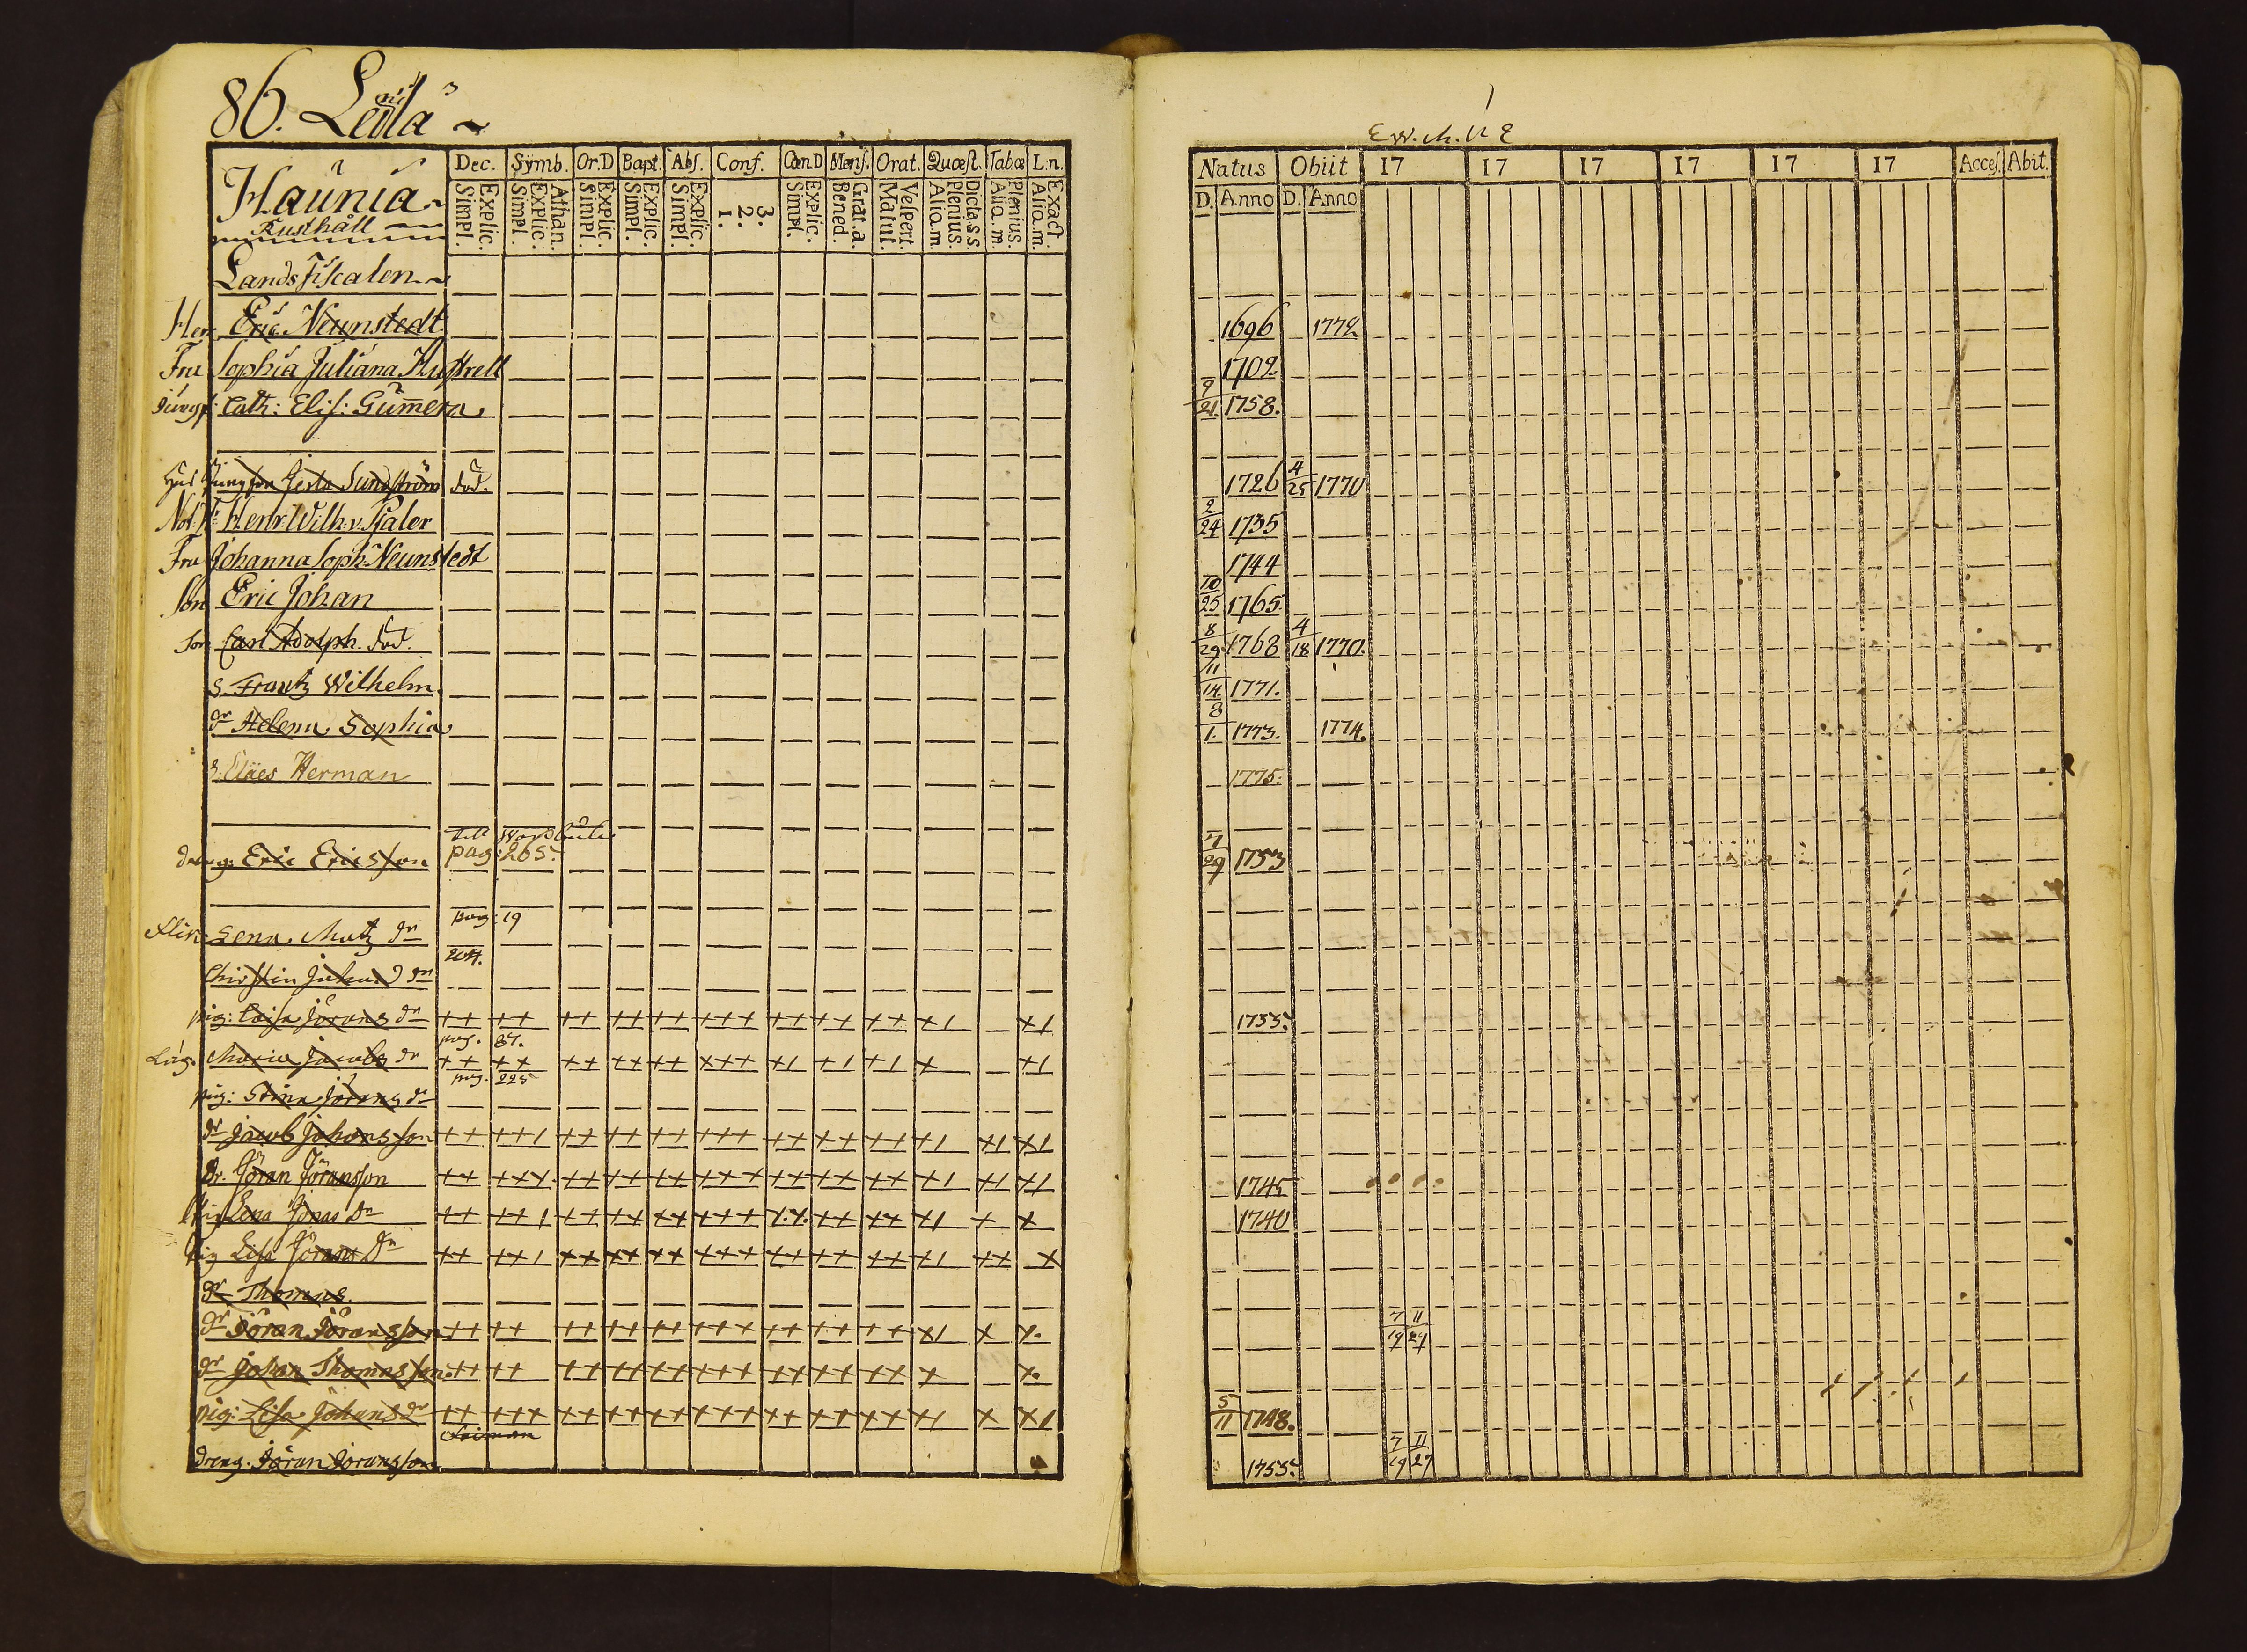 86. Leila
Haunia
Rusthåll
Dec. Symb. Or.D Bapt. Abs. Conf. Cœn D Mens. Orat. Quœst. Tabœ L.n.
Explic. Simpl. Athan. Explic. Simpl. Explic. Simpl. Explic. Simpl. Explic. Simpl. 3. 2. 1. Explic. Simpl. Grat.a. Bened. Vespert. Matut. Dicta.s.s. Plenius. Aliq.m. Plenius. Aliq.m. Exact. Aliq.m.
Natus Obiit 17 17 17 17 17 17 Acces. Abit.
D. Anno D. Anno
Lands Fiscalen
Herr Eric Neunstedt 1696 1772
Fru Sophia Juliana 1702
Jungf: Cath: Elis: Gummera 9/21 1758.
Jungfru Sundström död. 1726 4/25 1770
Not: Hr Henr: Wilh: v. Psaler 2/24 1735
Fru Johanna Soph: Neunstedt 1744
Son Eric Johan 10/25 1765
Son Carl Adolph. död. 8/29 1768 4/18 1770.
S. Frantz Wilhelm. 11/14 1771.
dr Helena Sophia 8/1. 1773. 1774.
S. Claes Herman 1775.
dreng: Eric Ericsson pag: 265. 7/29 1753
pag: 19
Lena Matz dr
204.
Christin dr
pig: Caisa Jörans dr ++ ++ ++ ++ ++ +++ ++ ++ ++ +1 +1 1755.
pag. 87.
Maria Jacobs dr ++ ++ ++ ++ ++ +++ +1 +1 +1 + +1
pag. 225
pig: Stina Jörans dr
dr Jacob Johansson ++ ++1 ++ ++ ++ +++ ++ ++ ++ +1 +1 +1
Dr. Jöran Jöransson ++ +++ ++ ++ ++ +++ ++ ++ ++ +1 +1 +1 1745
Lena Jonas dr ++ ++1 ++ ++ ++ +++ ++ ++ ++ +1 + + 1740
Pig Lisa Jörans Dr ++ ++1 ++ ++ ++ +++ ++ ++ ++ +1 ++ +
dr Thomas.
dr Jöran Jöransson ++ ++ ++ ++ ++ +++ ++ ++ ++ +1 + + 7/19 11/27
dr Johan Thomasson ++ ++ ++ ++ ++ +++ ++ ++ ++ + +
pig: Lisa Johans dr ++ +++ ++ ++ ++ +++ ++ ++ ++ +1 + +1 5/11 1748.
dreng. Jöran Jöransson 1755. 7/19 11/27